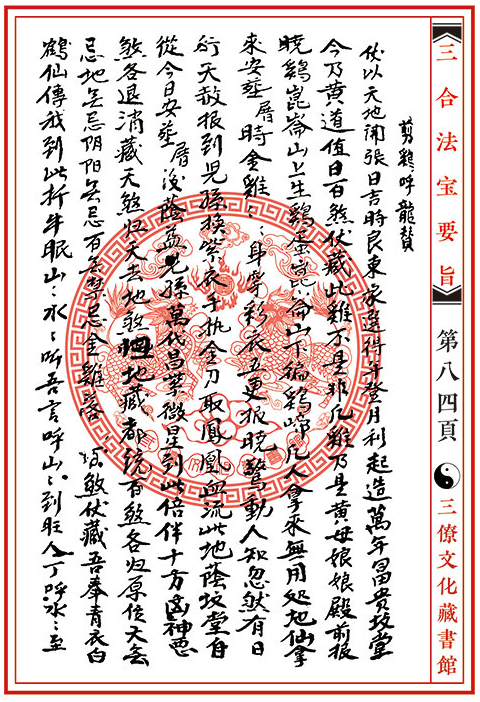 三合法宝要旨
第八四頁
三僚文化藏書館
剪鷄呼龍贊
伏以天地開張日吉時良東家選得年登月利起造萬年冨貴坟堂
今乃黄道值日百煞伏藏此雞不是非凡雞乃是黄母娘娘殿前报
曉鷄崑崙山上生鷄蛋崑崙山下徧鷄啼凡人拿來無用処地仙拿
來安塟厝時金雞ミ身穿彩衣五更报曉驚動人知忽然有日
行天赦报到児孫换紫衣手执金刀取鳳凰血流此地蔭坟堂自
從今日安塟厝後蔭益児孫萬代昌荣微星到此倍伴十方凶神恶
煞各退消藏天煞归天去地煞归地藏都统百煞各归原位天無
忌地無忌阴阳無忌百無禁忌金雞落坟煞伏藏吾奉青衣白
鶴仙傳我到此折牛眠山ミ水ミ听吾言呼山ミ到旺人丁呼水ミ至